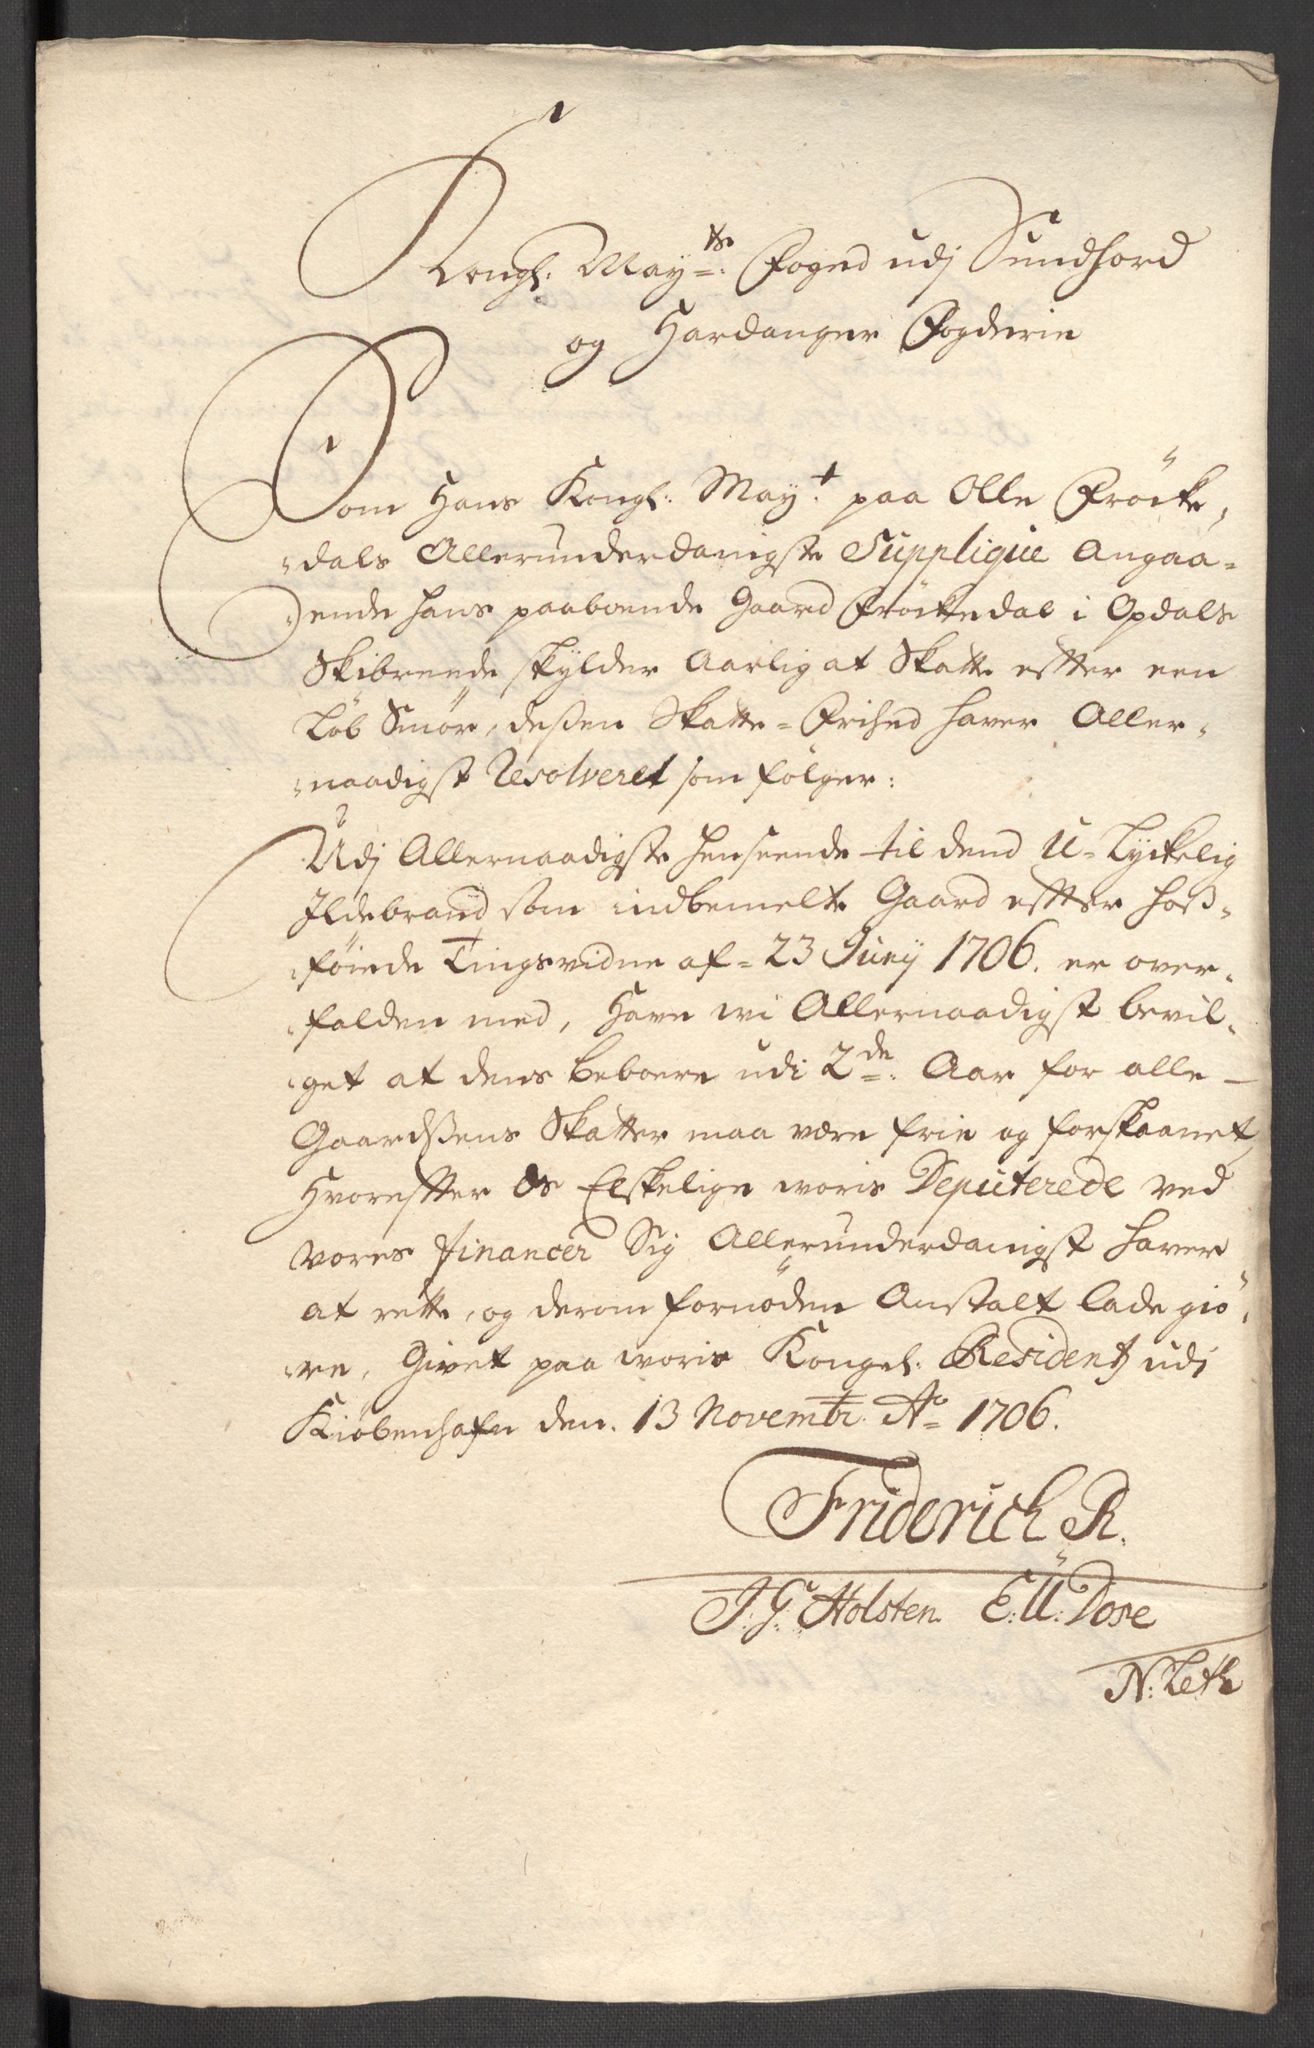 Kongl: May:ts Foged udj Sundhord
og Hardanger Fogderie
Som Hans Kongl: May:t paa Olle Fröcke,
dals Allerunderdanigste Supplique Angaa-
ende hans paaboende Gaard Fröckedal i Opdals
Skibreede skylder Aarlig at Skatte efter een
Löb Smör, deßen Skatte-Frihed haver Aller,
naadigst Resolveret som fölger:
Udj Allernaadigste henseende til dend U-Lyckelig
Ildebrand som indbemelte Gaard efter hoß,
föiede Tingsvidne af 23 Junÿ 1706. er over,
falden med, Have wi Allernaadigst bevil,
get at dens beboere udi 2de: Aar for alle
Gaardßens Skatter maa være frie og forskaanet,
Hvorefter Os Elskelige woris Deputerede ved
vores financer Sig Allerunderdanigst haver
at rette, og derom fornöden Anstalt lade giö,
re, Givet paa woris Kongel: Residentz udi
Kiöbenhafn den. 13 Novembr: Ao 1706.
Friderich R.
J: G: Holsten. E: U: Dose
N: Leth